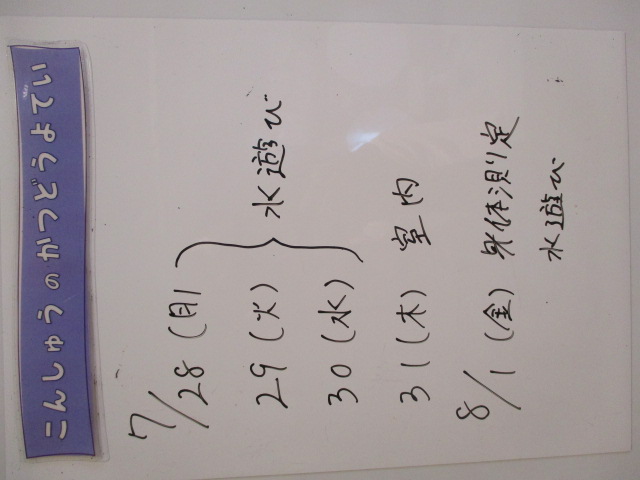 こんしゅうのかつどうよてい
7/28(月)
29(火)
30(水)
水遊び
31(木) 室内
8/1(金) 身体測定
水遊び